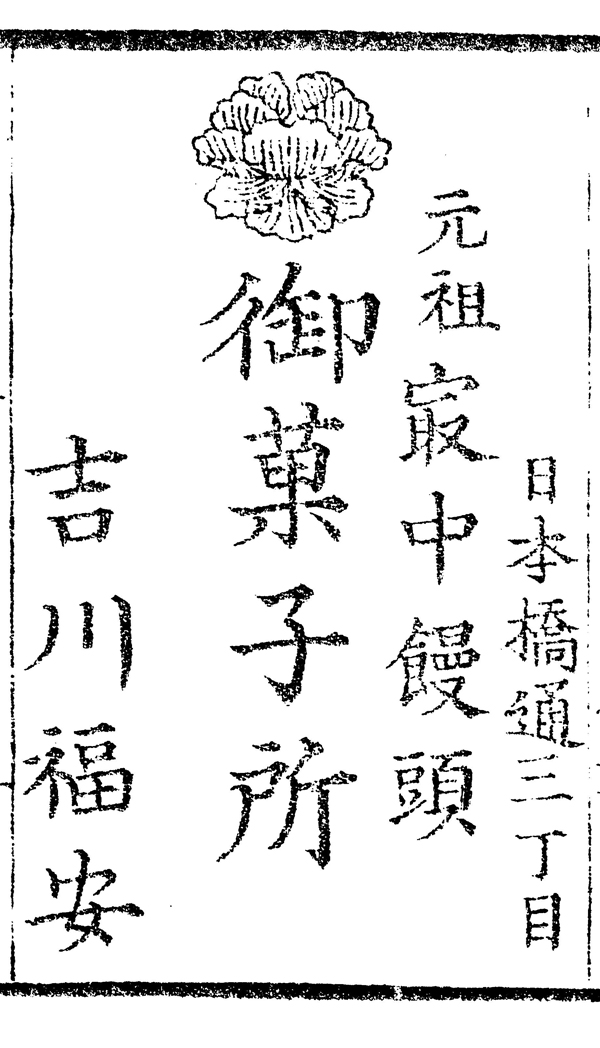 日本橋通三丁目
元祖㝡中饅頭
御菓子所
吉川福安